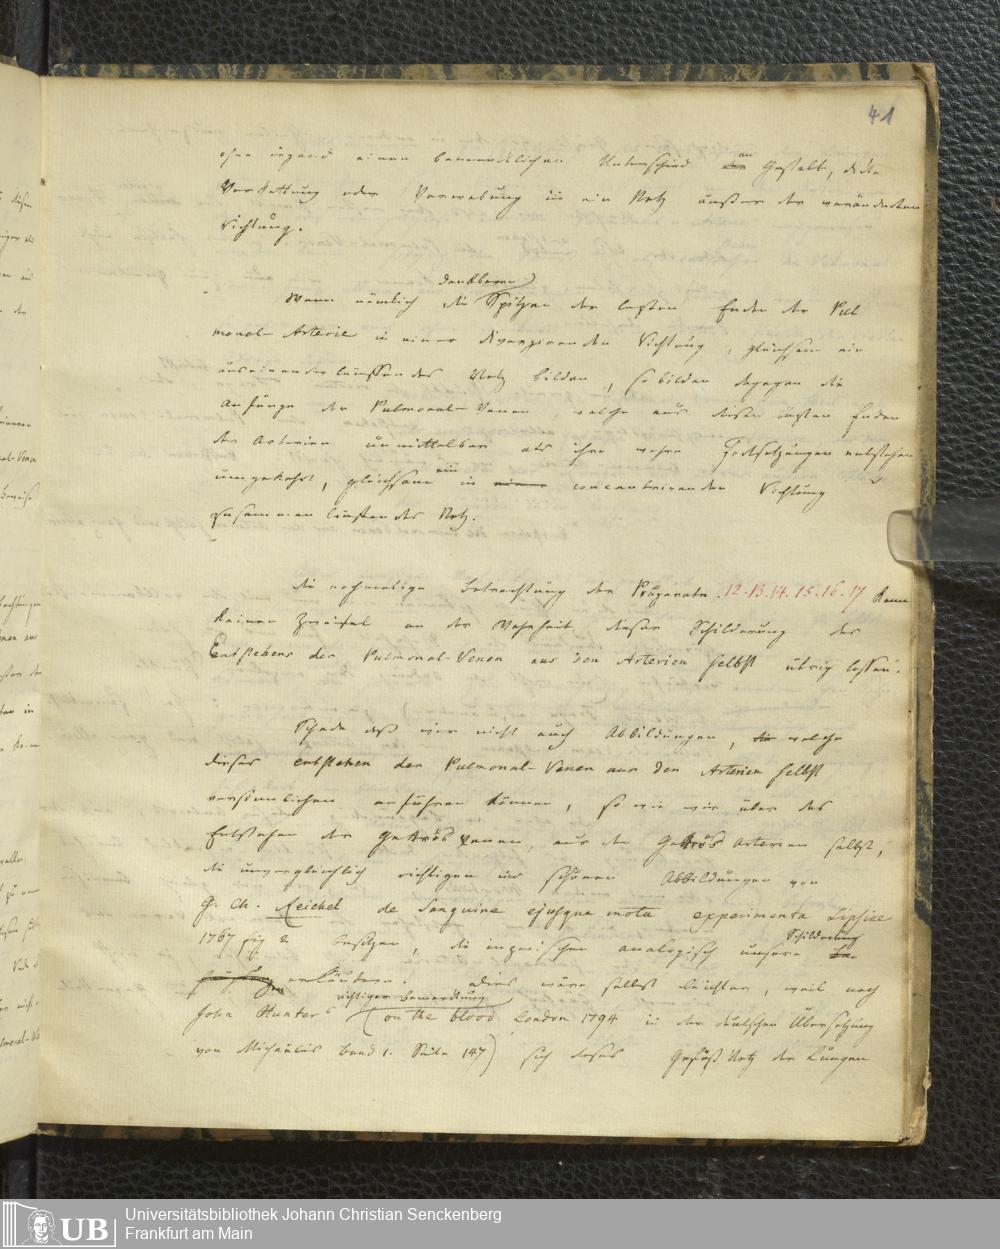 41
ohne irgend einen bemerklichen Unterschied an Gestalt, Dicke
Verkettung oder Verwebung in ein Netz außer der veränderten
Richtung.
denkbaren
Wenn nämlich die Spitzen der letzten Enden der Pul
monal-Arterie in einer divergirenden Richtung, gleichsam ein
auseinanderlaufendes Netz bilden, so bilden dagegen die
Anfänge der Pulmonal-Venen, welche aus diesen letzten Enden
der Arterien unmittelbar als ihre wahre Fortsetzungen entstehen
umgekehrt, gleichsam ein in concentrirenden Richtung
zusammen laufendes Netz.
die nochmalige Betrachtung der Präparate 12. 13. 14. 15. 16. 17 kann
keinen Zweifel an der Wahrheit dieser Schilderung des
Entstehens der Pulmonal-Venen aus den Arterien selbst übrig lassen.
Schade daß wir nicht auch Abbildungen, die welche
dieses entstehen der Pulmonal-Venen aus den Arterien selbst
versinnlichen anführen können, so wie wir über das
Entstehen der Gekrösvenen, aus den Gekrös Arterien selbst,
die unvergleichlich richtigen und schönen Abbildungen von
G. Ch. Reichel de Sanguine ejusque motu experimenta Lipsiae
1767 fig 2 besitzen, die inzwischen analogisch unsere Schilderung
erläutern. dies wäre selbst leichter, weil nach
richtiger Bemerkung
John Hunter's (on the blood London 1794 in der deutschen Übersetzung
von Michaëlis Band 1. Seite 147) sich dieses Gefäß Netz der Lungen
UB
Universitätsbibliothek Johann Christian Senckenberg
Frankfurt am Main